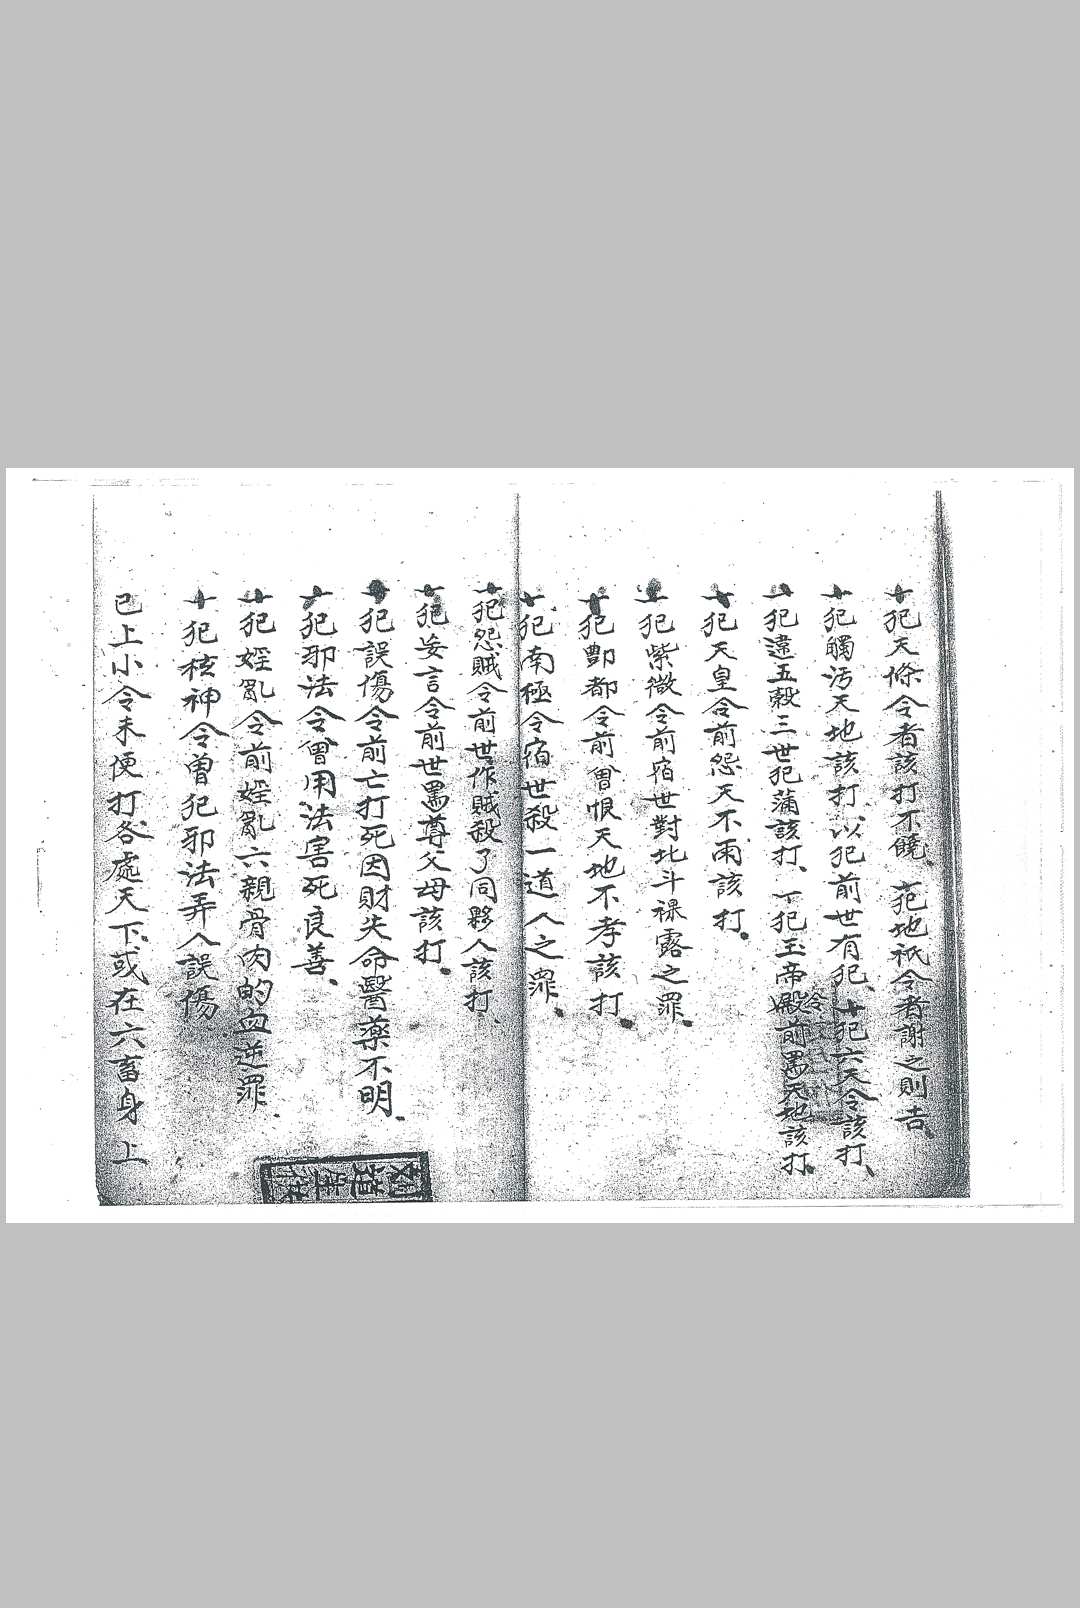 一犯天條令者該打不饒、犯地祇令者謝之則吉、
一犯觸污天地該打、以犯前世有犯、一犯六天令該打、
一犯違五穀三世犯蒲該打、一犯玉帝殿前罵天地該打、
一犯天皇令前怨天不雨該打、
一犯紫微令前宿世對北斗裸露之罪、
一犯酆都令前曾恨天地不孝該打、
一犯南極令宿世殺一道人之罪、
一犯怨賊令前世作賊殺了同夥人該打、
一犯妄言令前世罵尊父母該打、
一犯誤傷令前亡打死因財失命醫藥不明、
一犯邪法令曾用法害死良善、
一犯婬亂令前婬亂六親骨肉的血逆罪、
一犯核神令曾犯邪法弄人誤傷
已上小令未便打各處天下、或在六畜身上